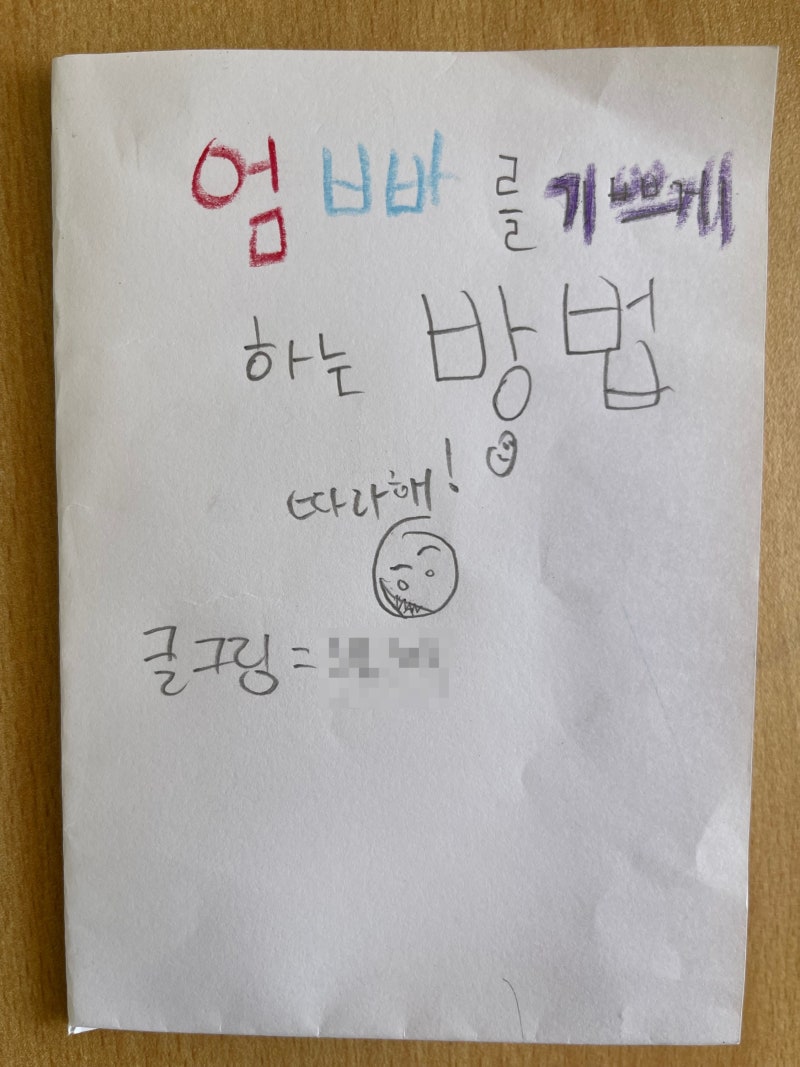 엄빠를 기쁘게
하는 방법
따라해!
글그림=